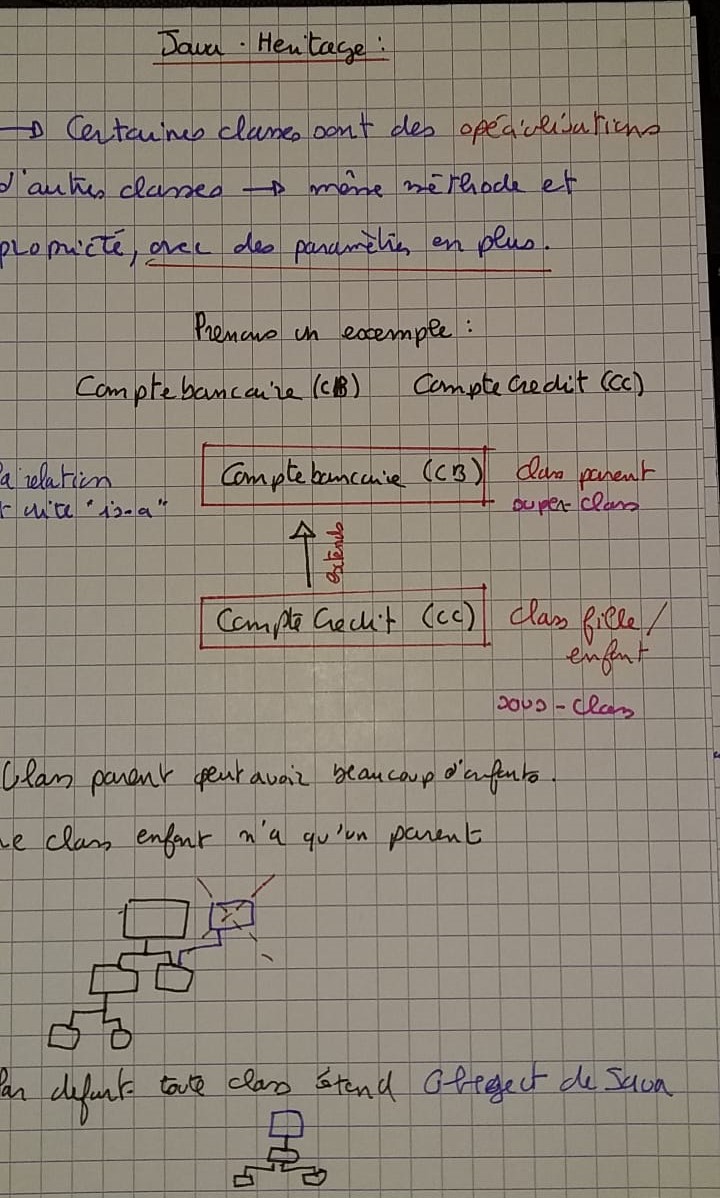 Java. Heritage :
→ Certaines classes sont des spécialisations
d'autres classes → même méthode et
propriété, avec des paramètres en plus.
Prenons un exemple :
Compte bancaire (CB) Compte Credit (CC)
a relation
dite "is-a"
Compte bancaire (CB)
class parent
super-class
extends
Compte Credit (CC)
class fille /
enfant
sous-class
Class parent peut avoir beaucoup d'enfants.
e class enfant n'a qu'un parent
Par defaut toute class étend Obeject de Java